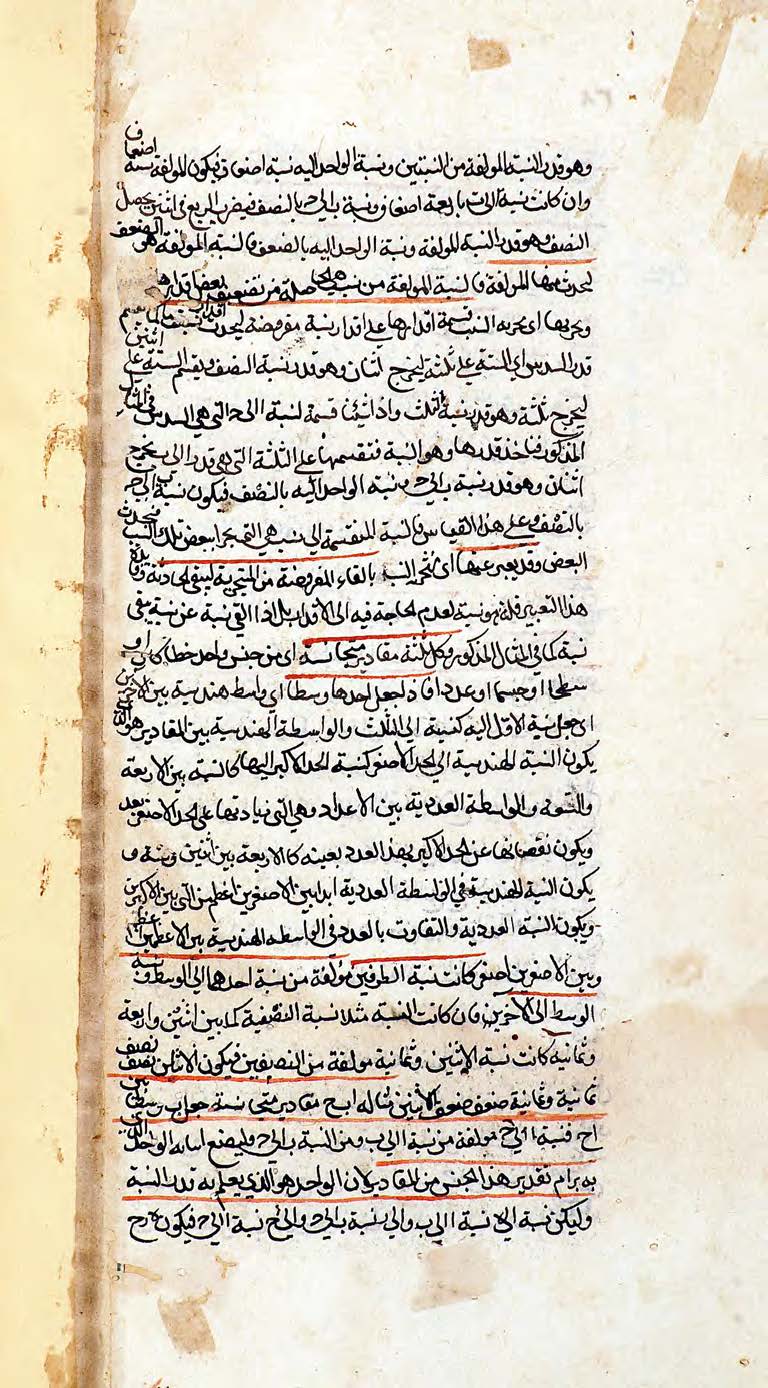 وهو قدر النسبة المولفة من النسبتين ونسبة الواحد اليه نسبة اضعاف فيكون المولفة نسبة اضعاف
وان كانت نسبة ا الى ب باربعة اضعاف ونسبة ب الى ح بالنصف فيضرب الربع في اثنين يحصل
النصف وهو قدر النسبة المولفة ونسبة الواحد اليه بالضعف فالنسبة المولفة هو بالضعف
ليحدث منها المولفة فالنسبة المولفة من نسب هي الحاصلة من تضعيف بعض اقدارها
وتجزيها اى تجزية النسب قسمة اقدارها على اقدار نسبة مفروضة ليحدث اقدار نسب
قدر السدس اي الستة على ثلثة ليخرج اثنان وهو قدر نسبة النصف ويقسم الستة على اثنين
ليخرج ثلثة وهو قدر نسبة الثلث واذا شئنا قسمة نسبة ا الى ح التي هي السدس في المثال
المذكور فناخذ قدرها وهو الستة فنقسمها على الثلثة التي هي قدر ا الى ب يخرج
اثنان وهو قدر نسبة ب الى ح ونسبة الواحد اليه بالنصف فيكون نسبة ب الى ح
بالنصف وعلى هذا القياس فالنسبة المنقسمة الى نسب هي التي تجزا ببعض تلك النسب فيحدث
البعض وقد يعبر عنها اى تجزية النسب بالقاء المفروضة من المتجزية ليبقى الحادثة وفايدة
هذا التعبير فانه مونسة لعدم الحاجة فيه الى الاقدار بل اذا القي نسبة عن نسبة يبقى
نسبة كما في المثال المذكور وكل ثلثة مقادير متجانسة اى من جنس واحد خطا كان او
سطحا او جسما او عددا فاذا جعل احدها وسطا اي واسط هندسية بين الاخرين
اى جعل نسبة الاول اليه كنسبته الى الثالث والواسطة الهندسية بين المقادير هو الذي
يكون النسبة الهندسية الى الحد الاصغر كنسبة الحد الاكبر اليها كالستة بين الاربعة
والتسعة والواسطة العددية بين الاعداد وهي التي زيادتها على الحد الاصغر بعدد
ويكون نقصانها عن الحد الاكبر بهذا العدد بعينه كالاربعة بين اثنين وستة و
يكون النسبة الهندسية في الواسطة العددية ابدا بين الاصغرين اعظم من التي بين الاكبرين
ويكون النسبة العددية والتفاوت بالعدد في الواسطة الهندسية بين الاعظمين اعظم
وبين الاصغرين اصغر كانت نسبة الطرفين مولفة من نسبة احدهما الى الوسط ونسبة
الوسط الى الاخر فان كانت النسبة مثلا نسبة النصفية كما بين اثنين واربعة
وثمانية كانت نسبة الاثنين وثمانية مولفة من النصفين فيكون الاثنان نصف نصف
ثمانية وثمانية ضعف ضعف الاثنين مثاله ا ب ح مقادير متجانسة جعل ب وسطا بين
ا ح فنسبة ا الى ح مولفة من نسبة ا الى ب ومن النسبة ب الى ح وليضع اما به الواحد الذى
به يرام تقدير هذا الجنس من المقادير لان الواحد هو الذي يعلم به قدر النسبة
وليكن نسبة الى نسبة ا الى ب والى نسبة ب الى ح والى ح نسبة ا الى ح فيكون ه ر ح